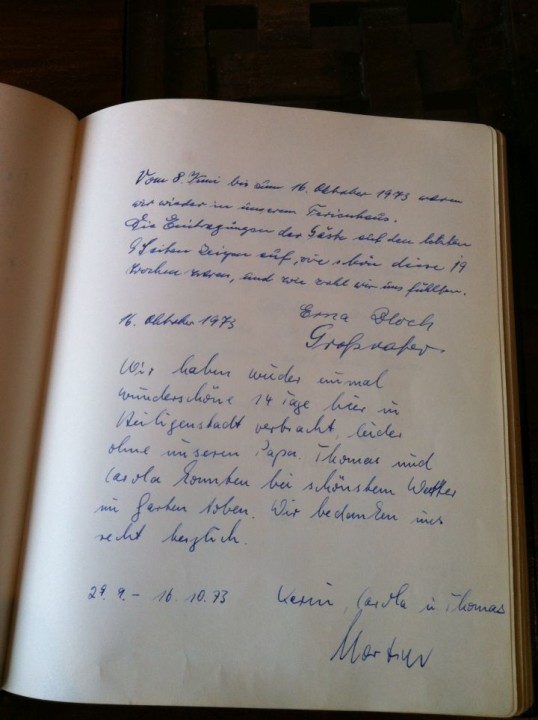 Vom 8. Juni bis zum 16. Oktober 1973 waren
wir wieder in unserem Ferienhaus.
Die Eintragungen der Gäste auf den letzten
9 Seiten zeigen auf, wie schön diese 19
Wochen waren, und wie wohl wir uns fühlten.
16. Oktober 1973
Erna Bloch
Großvater.
Wir haben wieder einmal
wunderschöne 14 Tage hier in
Heiligenstadt verbracht, leider
ohne unseren Papa. Thomas und
Carola konnten bei schönstem Wetter
im Garten toben. Wir bedanken uns
recht herzlich.
29. 9. - 16. 10. 73
Karin, Carola u Thomas